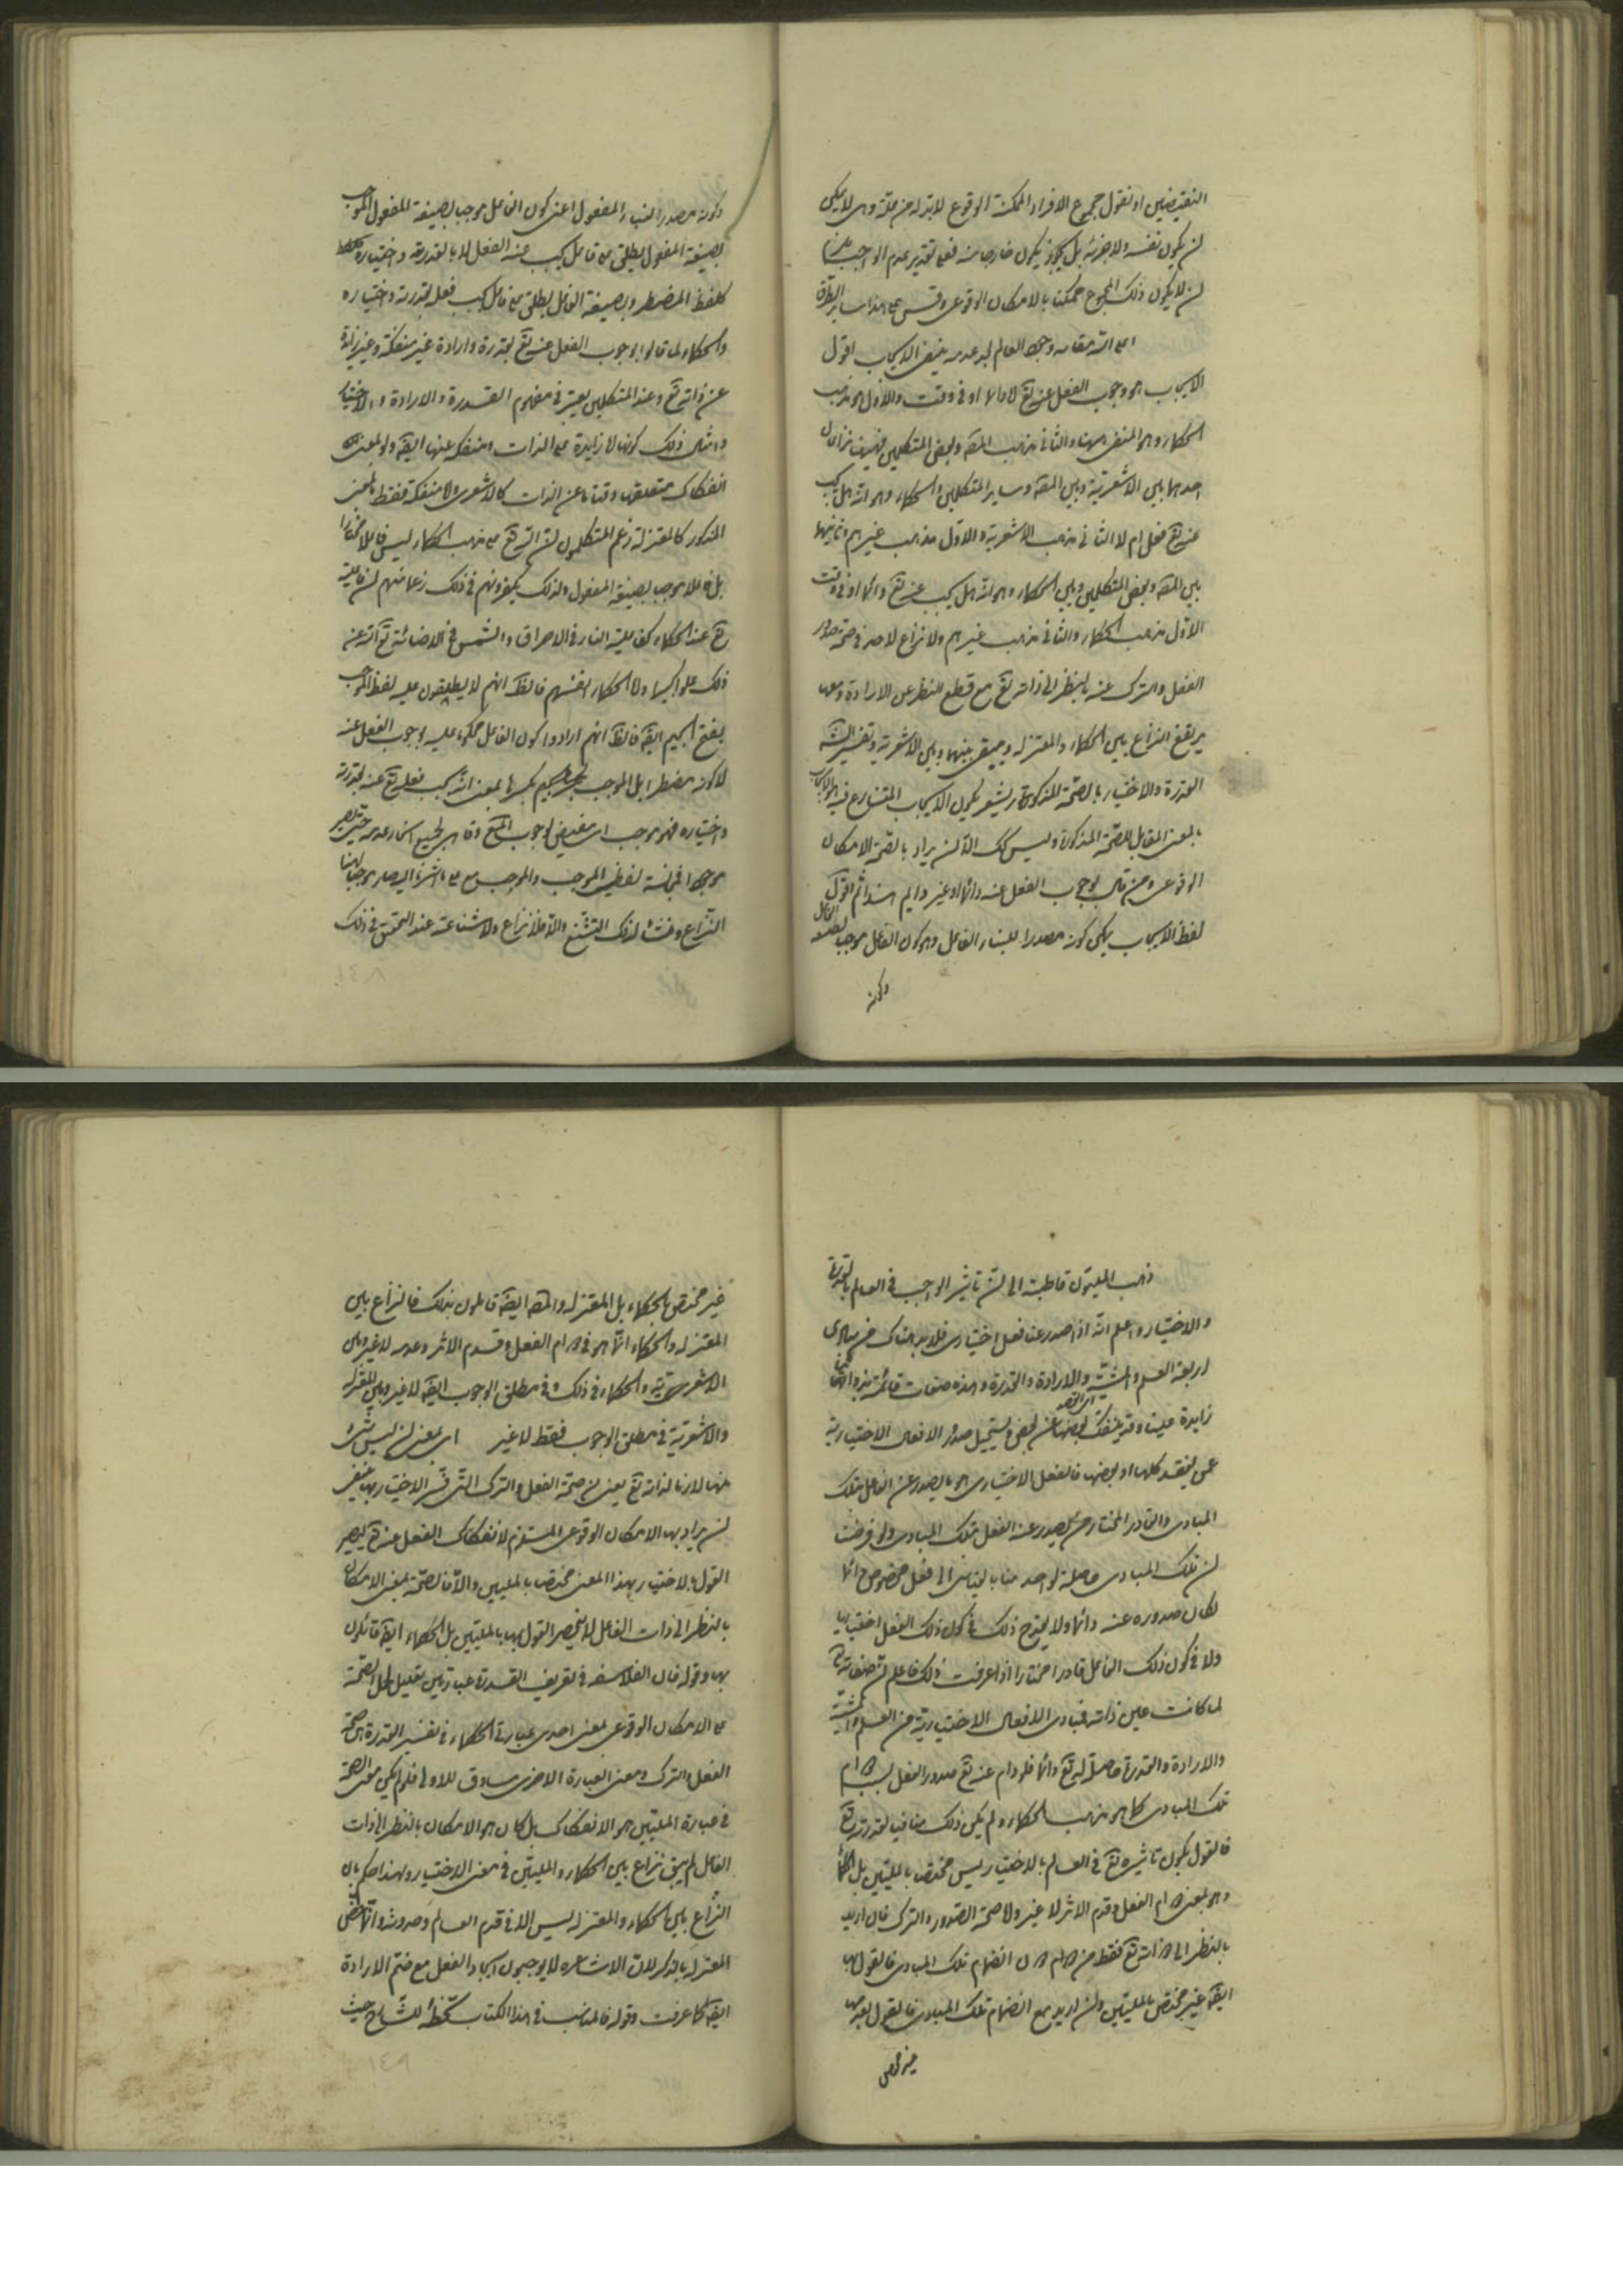 النقيضين او نقول جميع الافراد الممكنة الوقوع لابد له من علة وهي لا يمكن
ان يكون نفسه ولا جزئه بل يكون خارجا عنه فعلى تقدير عدم الواجب
ان لا يكون ذلك المجموع ممكنا بالامكان الوقوعي وقس على هذا ساير الطرق
وجود العالم بعد عدمه ينفي الايجاب اقول
الايجاب هو وجوب الفعل عنه تع لا دائما او في وقت والاول هو مذهب
الحكماء وهو المنفي ههنا والثاني مذهب المص وبعض المتكلمين فههنا نزاعان
احدهما بين الاشعرية وبين المص وساير المتكلمين والحكماء وهو انه هل يجب
عنه تع فعل ام لا الثاني مذهب الاشعرية والاول مذهب غيرهم وثانيهما
بين المص وبعض المتكلمين وبين الحكماء وهو انه هل يجب عنه تع دائما او في وقت
الاول مذهب الحكماء والثاني مذهب غيرهم ولا نزاع لاحد في صحة صدور
الفعل والترك عنه بالنظر الى ذاته تع مع قطع النظر عن الارادة
يرتفع النزاع بين الحكماء والمعتزلة ويبقى بينهما وبين الاشعرية وتفسير
القدرة والاختيار بالصحة المذكورة يشعر بكون الايجاب المتنازع فيه هو الايجاب
بالمعنى المقابل للصحة المذكورة وليس كك الا ان يراد بالصحة الامكان
الوقوعي ومن قال بوجوب الفعل عنه دائما او غير دايم هذا ثم اقول
لفظ الايجاب يمكن كونه مصدرا للبناء الفاعل وهو كون الفاعل موجبا بصيغة الفاعل
وكونه
وكونه مصدرا للبناء المفعول اعني كون الفاعل موجبا بصيغة المفعول والموجب
بصيغة المفعول يطلق على فاعل يجب عنه الفعل لا بالقدرة واختياره
كلفظ المضطر وبصيغة الفاعل يطلق على فاعل يجب فعله بقدرته واختياره
والحكماء لما قالوا بوجوب الفعل عنه تع بقدرة وارادة غير منفكة وغير زائدة
عن ذاته تع وعند المتكلمين يعتبر في مفهوم القدرة والارادة والاختيار
وامثال ذلك كونها زايدة على الذات ومنفكة عنها ايضا ولو بمعنى
انفكاك متعلقها وقتا ما عن الذات كالاشعري او منفكة فقط بالمعنى
المذكور كالمعتزلة زعم المتكلمون ان الله تع على مذهب الحكماء ليس فاعلا مختارا
بل فاعلا موجبا بصيغة المفعول ولذلك يكفرونهم في ذلك زعما منهم ان فاعليته
تع عند الحكماء كفاعلية النار في الاحراق والشمس في الاضائة تع الله عن
ذلك علوا كبيرا واما الحكماء انفسهم فالظ انهم لا يطلقون عليه لفظ الموجب
بفتح الجيم ايضا فالظ انهم ارادوا كون الفاعل محكوما عليه بوجوب الفعل عنه
لا كونه مضطرا بل الموجب بكسرها بمعنى انه يجب فعله تع عنه بقدرته
واختياره فهو موجب اي مفيض لوجوب الممتنع وقاهر لجميع انحاء عدمه حتى يصير
موجودا فمجانسة لفظي الموجب والموجب مع ما اشرنا اليه صار موجبا لهذا
النزاع ومنشأ لذلك التشنع والا فلا نزاع ولا شناعة عند التحقيق في ذلك
١٤٨
ذهب المليون قاطبة الى ان تاثير الواجب في العالم بالقدرة
والاختيار واعلم انه اذا صدر عنا فعل اختياري فلابد هناك من مبادي
اربعة العلم والمشية والارادة والقدرة وهذه صفات قائمة بذواتنا
زايدة علينا وقد ينفك بعضها عن بعض ويستحيل صدور الافعال الاختيارية
عمن يفقد كلها او بعضها فالفعل الاختياري هو ما يصدر عن الفاعل بتلك
المبادي والقادر المختار من يصدر عنه الفعل بتلك المبادي ولو فرضت
ان تلك المبادي حاصلة لواحد منا بالقياس الى فعل مخصوص دائما
لكان صدوره عنه دائما ولا يقدح ذلك في كون ذلك الفعل اختياريا
ولا في كون ذلك الفاعل قادرا مختارا اذا عرفت ذلك فاعلم ان صفاته تع
لما كانت عين ذاته فمبادي الافعال الاختيارية من العلم والمشية
والارادة والقدرة حاصلة له تع دائما فلو دام عنه تع صدور الفعل بسبب دوام
تلك المبادي كما هو مذهب الحكماء ولم يكن ذلك منافيا لقدرته تع
فالقول بكون تاثيره تع في العالم بالاختيار ليس مختصا بالمليين بل الحكماء
وهو بمعنى دوام الفعل وقدم الاثر لا غير ولا صحة الصدور والترك فان اريد
بالنظر الى ذاته تع فقط من دون انضمام تلك المبادي فالقول بها
ايضا غير مختص بالمليين وان اريد مع انضمام تلك المبادي فالقول بعدمها
غير مختص
غير مختص بالحكماء بل المعتزلة والمص ايضا قائلون بذلك فالنزاع بين
المعتزلة والحكماء انما هو في دوام الفعل وقدم الاثر وعدمه لا غير وبين
الاشعرية والحكماء في ذلك وفي مطلق الوجوب ايضا لا غير وبين المعتزلة
والاشعرية في مطلق الوجوب فقط لا غير اي بمعنى ان ليس شيء
منها لازما لذاته تع يعني من صحة الفعل والترك التي فسر الاختيار بها ينبغي
ان يراد بها الامكان الوقوعي المستلزم لانفكاك الفعل عنه تع ليصير
القول بالاختيار بهذا المعنى مختصا بالمليين والا فالصحة بمعنى الامكان
بالنظر الى ذات الفاعل لا ينحصر القول بها بالمليين بل الحكماء ايضا قائلون
بها وقوله فان الفلاسفة في تعريف القدرة عبارتين تعليل لحمل الصحة
على الامكان الوقوعي بمعنى احدى عبارتي الحكماء في تفسير القدرة هي صحة
الفعل والترك ومعنى العبارة الاخرى مساوق للاولى فلو لم يكن معنى الصحة
في عبارة المليين هو الانفكاك بل كان هو الامكان بالنظر الى ذات
الفاعل لم يبق نزاع بين الحكماء والمليين في معنى الاختيار ولهذا حكم بان
النزاع بين الحكماء والمعتزلة ليس الا في قدم العالم وحدوثه وانما خص
المعتزلة بالذكر لان الاشاعرة لا يوجبون ايجاد الفعل مع ضم الارادة
ايضا كما عرفت وقوله فالمناسب في هذا الكتاب تخطئة للشارح حيث
١٤٩